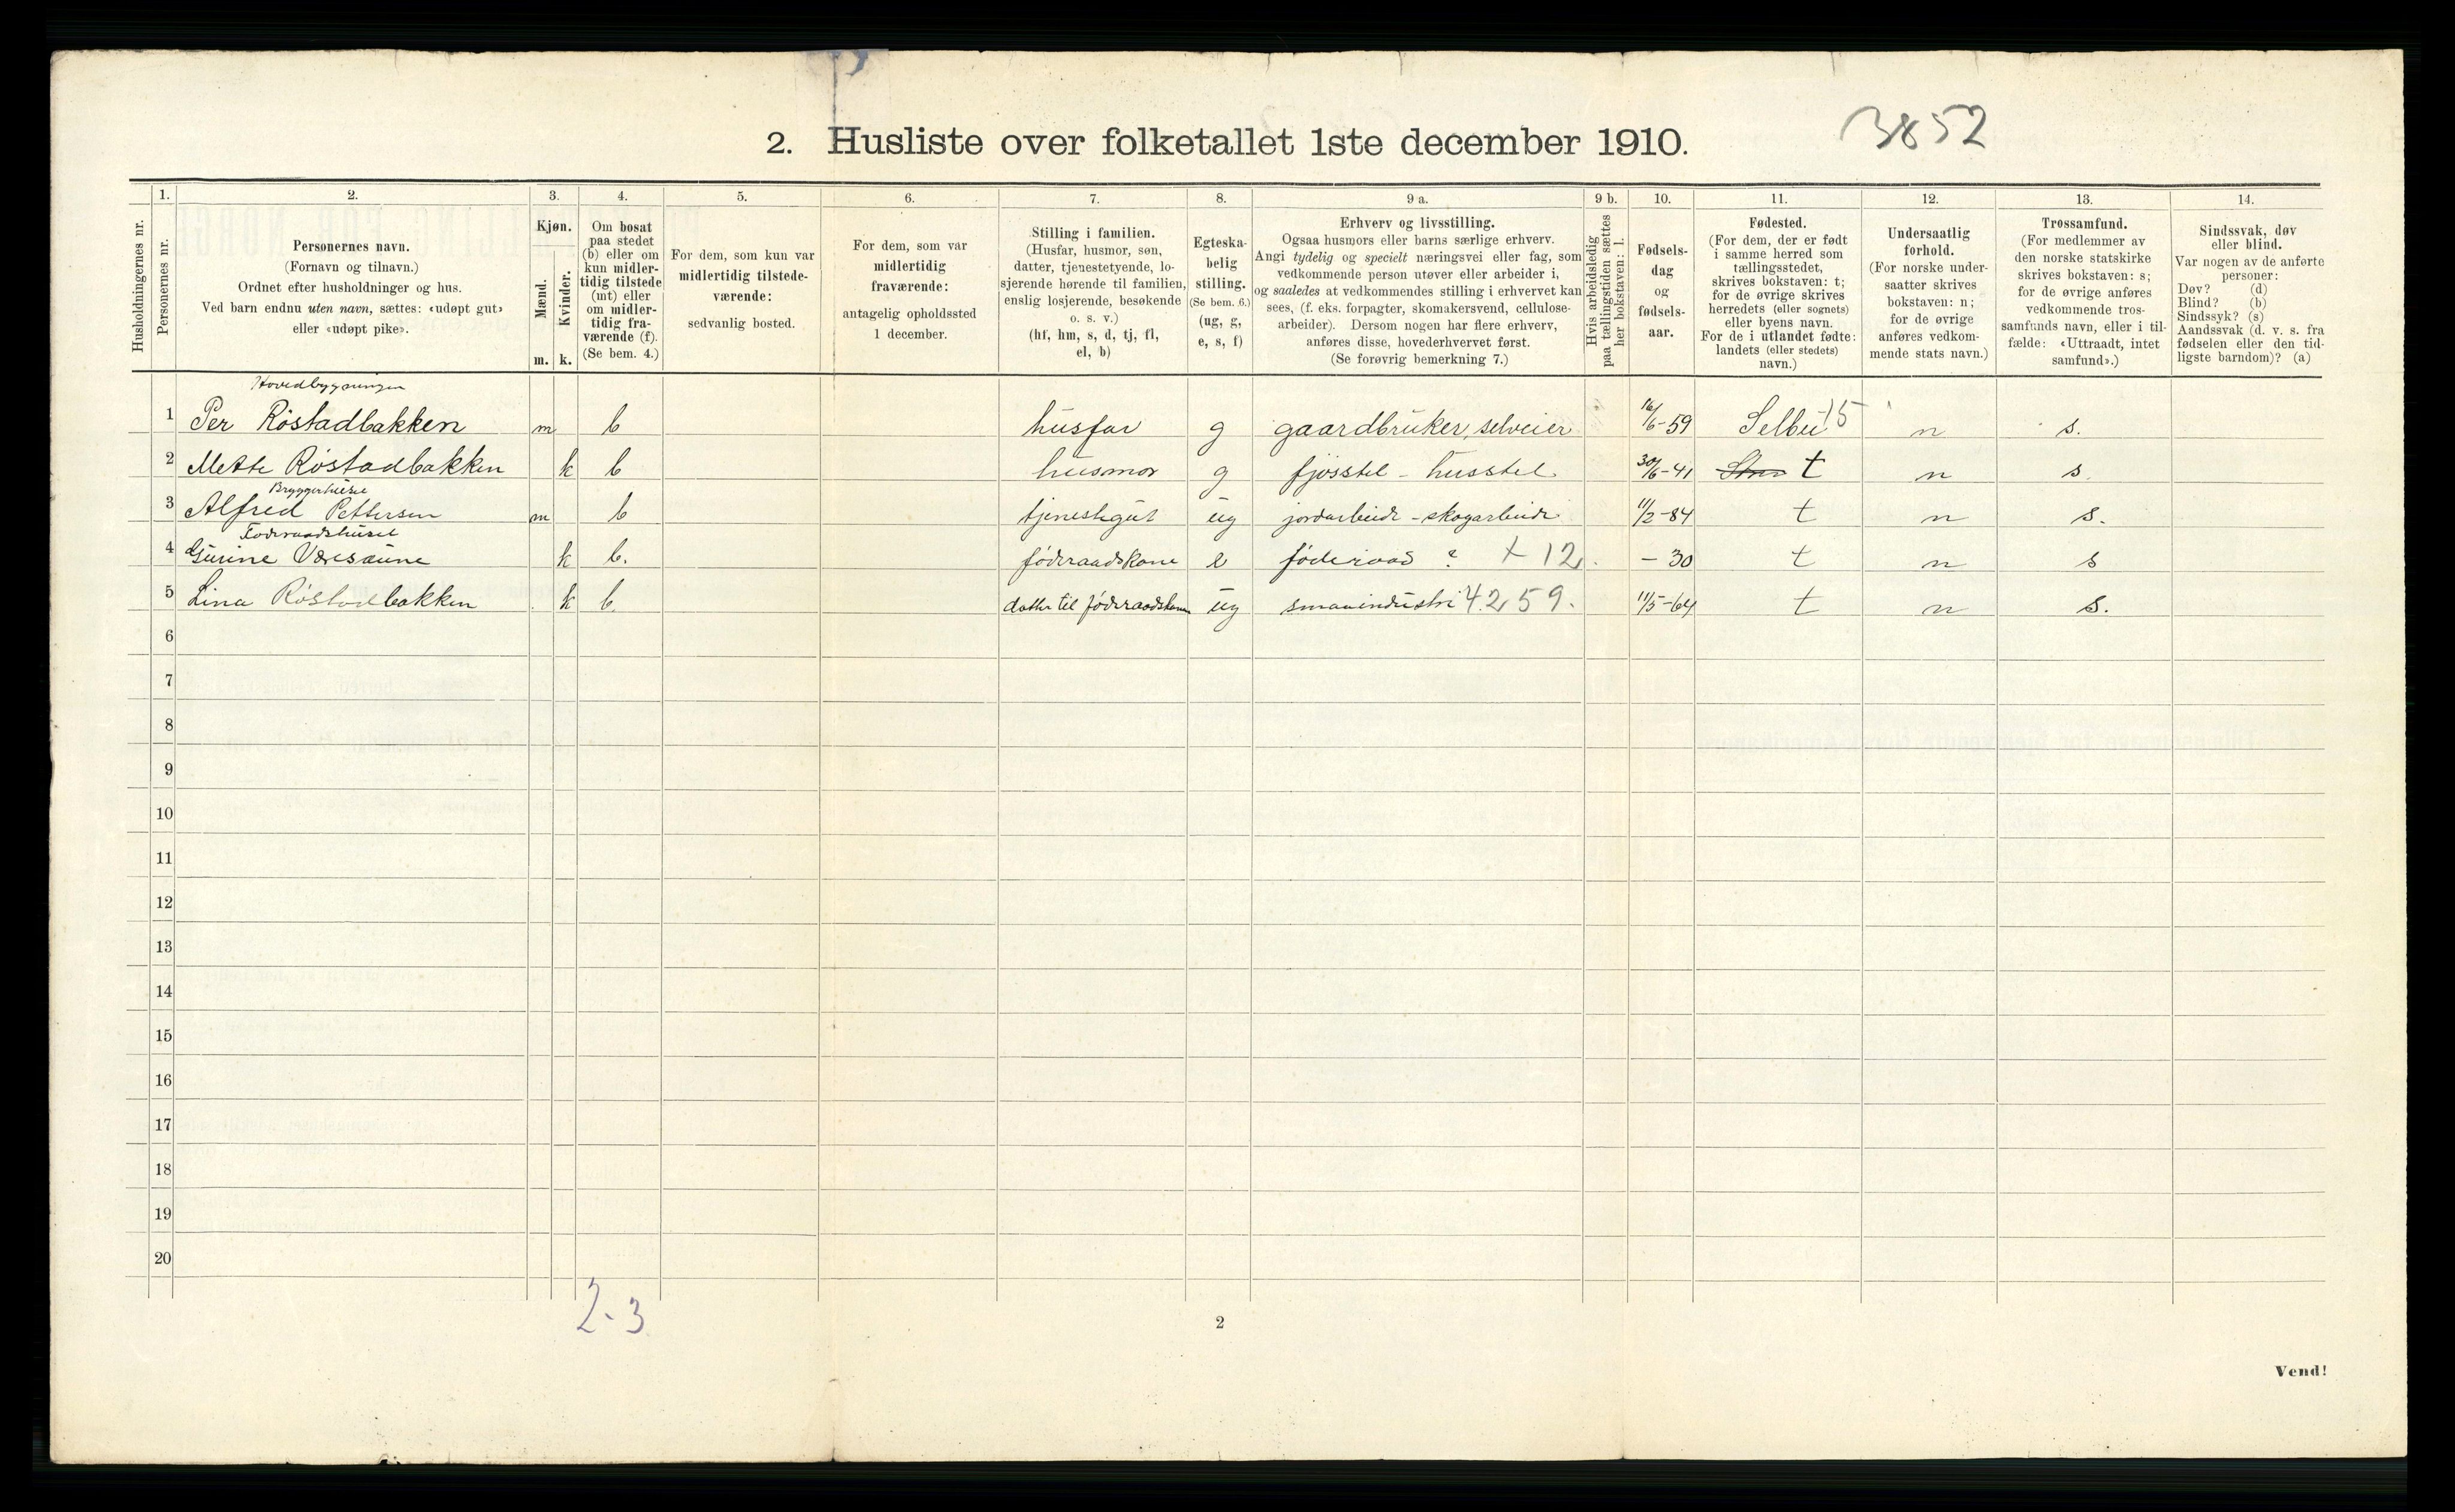 2. Husliste over folketallet 1ste december 1910.
3852
Husholdningernes nr.
1.
Personernes nr.
2.
Personernes navn.
(Fornavn og tilnavn.)
Ordnet efter husholdninger og hus.
Ved barn endnu uten navn, sættes: «udøpt gut»
eller «udøpt pike».
3.
Kjøn.
Mænd.
Kvinder.
m. k.
4.
Om bosat
paa stedet
(b) eller om
kun midler-
tidig tilstede
(mt) eller
om midler-
tidig fra-
værende (f).
(Se bem. 4.)
5.
For dem, som kun var
midlertidig tilstede-
værende:
sedvanlig bosted.
6.
For dem, som var
midlertidig
fraværende:
antagelig opholdssted
1 december.
7.
Stilling i familien.
(Husfar, husmor, søn,
datter, tjenestetyende, lo-
sjerende hørende til familien,
enslig losjerende, besøkende
o. s. v.)
(hf, hm, s, d, tj, fl,
el, b)
8.
Egteska-
belig
stilling.
(Se bem. 6.)
(ug, g,
e, s, f)
9 a.
Erhverv og livsstilling.
Ogsaa husmors eller barns særlige erhverv.
Angi tydelig og specielt næringsvei eller fag, som
vedkommende person utøver eller arbeider i,
og saaledes at vedkommendes stilling i erhvervet kan
sees, (f. eks. forpagter, skomakersvend, cellulose-
arbeider). Dersom nogen har flere erhverv,
anføres disse, hovederhvervet først.
(Se forøvrig bemerkning 7.)
9 b.
Hvis arbeidsledig
paa tællingstiden sættes
her bokstaven: l.
10.
Fødsels-
dag
og
fødsels-
aar.
11.
Fødested.
(For dem, der er født
i samme herred som
tællingsstedet,
skrives bokstaven: t;
for de øvrige skrives
herredets (eller sognets)
eller byens navn.
For de i utlandet fødte:
landets (eller stedets)
navn.)
12.
Undersaatlig
forhold.
(For norske under-
saatter skrives
bokstaven: n;
for de øvrige
anføres vedkom-
mende stats navn.)
13.
Trossamfund.
(For medlemmer av
den norske statskirke
skrives bokstaven: s;
for de øvrige anføres
vedkommende tros-
samfunds navn, eller i til-
fælde: «Uttraadt, intet
samfund».)
14.
Sindssvak, døv
eller blind.
Var nogen av de anførte
personer:
Døv? (d)
Blind? (b)
Sindssyk? (s)
Aandssvak (d. v. s. fra
fødselen eller den tid-
ligste barndom)? (a)
Hovedbygningen
1 Per Röstadbakken m b husfar g gaardbruker, selveier 16/6-59 Selbu 15 n s.
2 Mette Röstadbakken k b husmor g fjösstel - husstel 30/6-41 t n s.
Bryggerhuset
3 Alfred Pettersen m b tjenestegut ug jordarbeide - skogarbeide 11/2-84 t n s.
Föderaadshuset
4 Gurine Væresaune k b. föderaadskone e föderaad ? + 12 - 30 t n s
5 Lina Röstadbakken k b. datter til föderaadskonen ug smaaindustri 4.259. 11/5-64 t n s.
6
7
8
9
10
11
12
13
14
15
16
17
18
19
20
2-3
2
Vend!